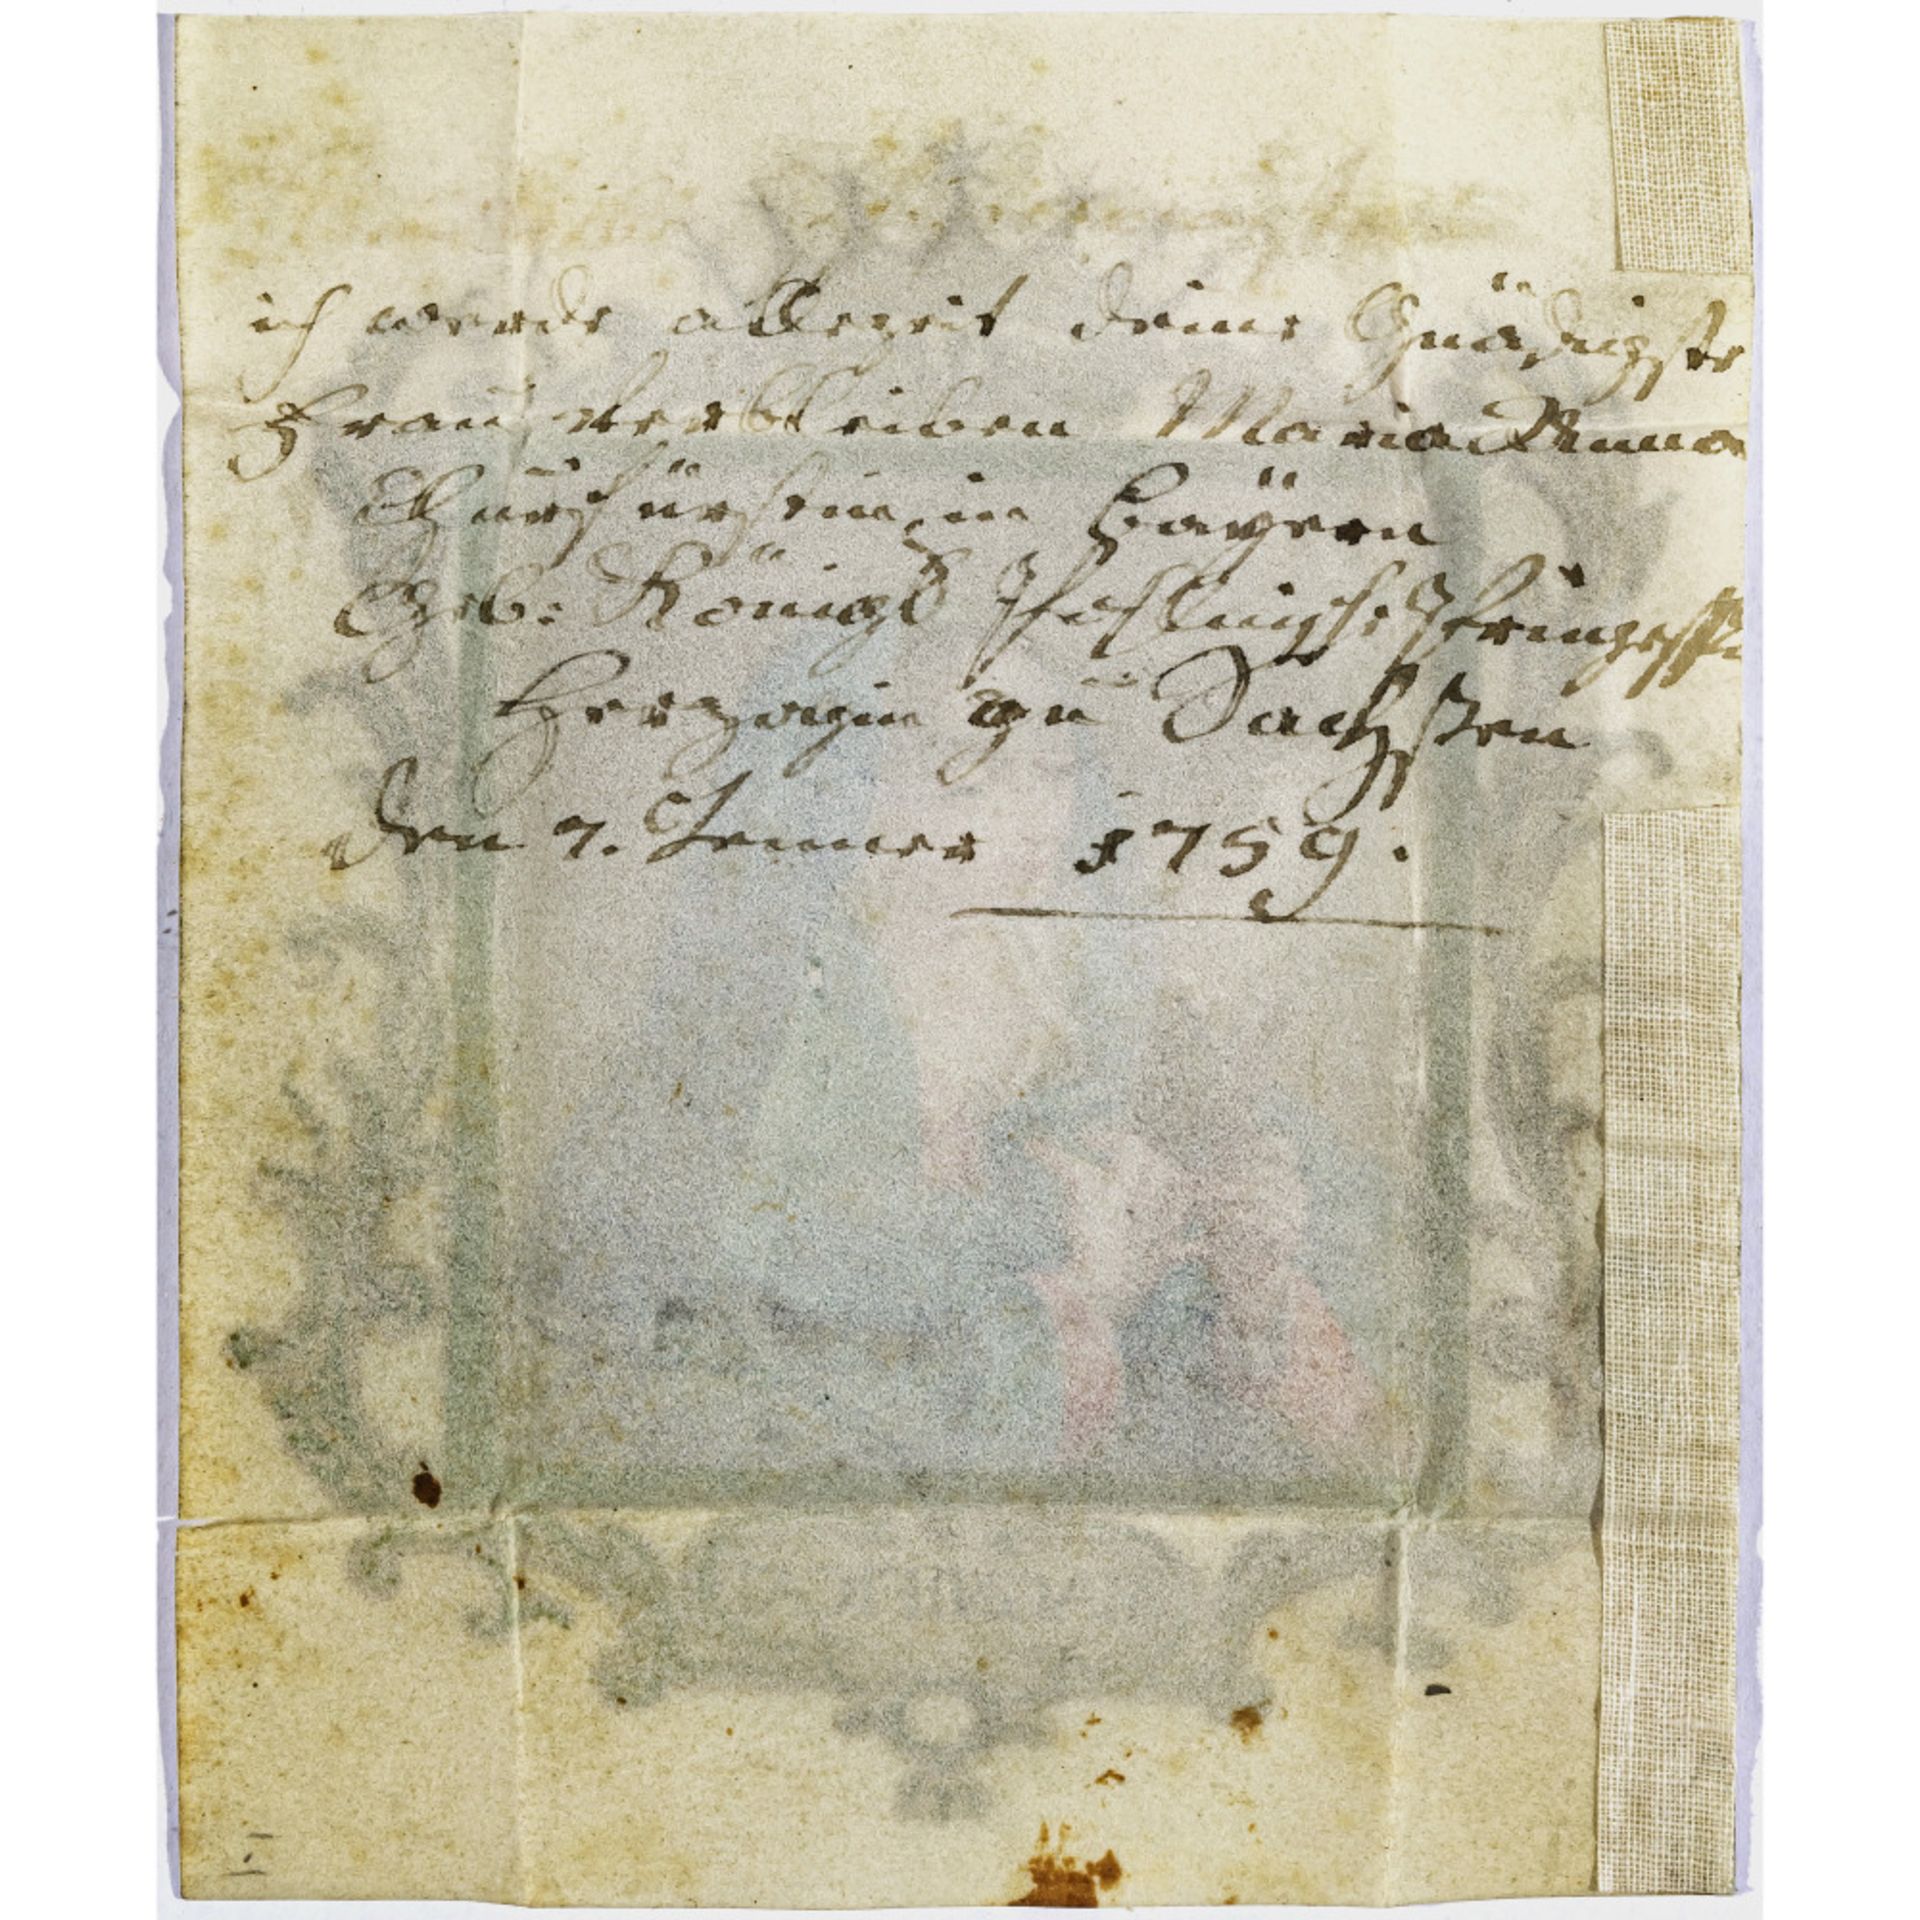 ich werde allezeit deine Gnädigste
Frau verbleiben Maria Anna
Churfürstin in Bayern
Geb: Königl Pohlnische Printzessin
Herzogin zu Sachsen
den 7. Jenner 1759.